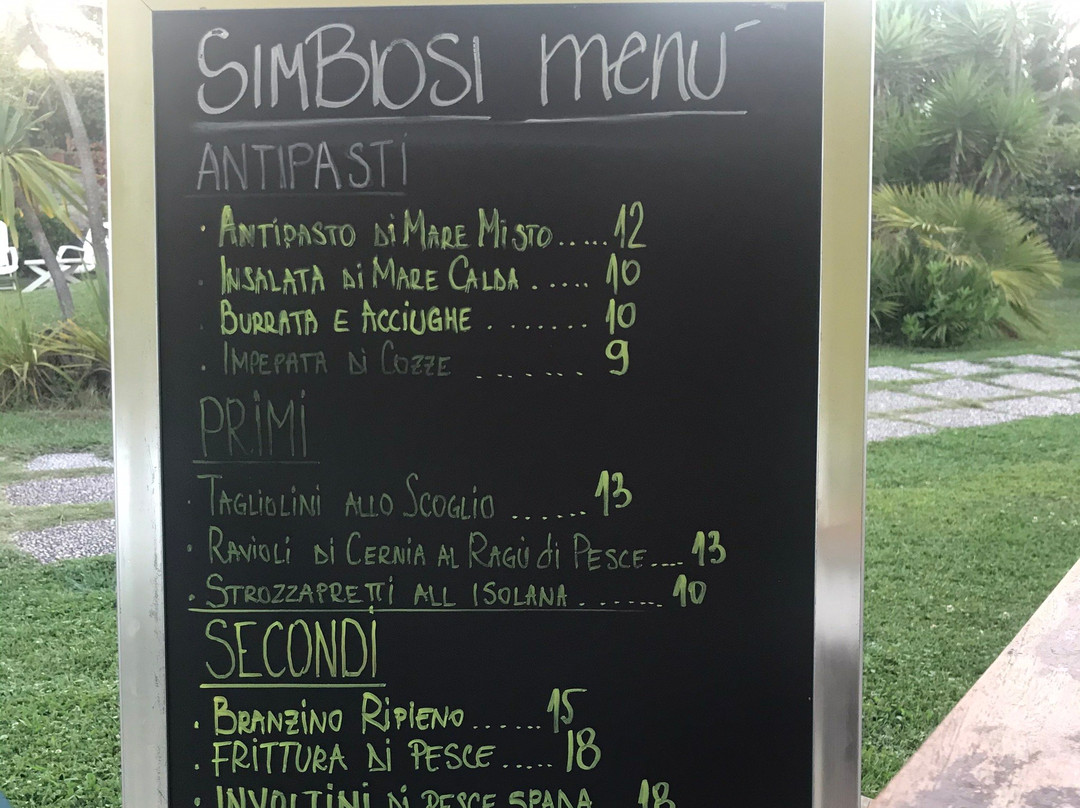 SIMBIOSI menú
ANTIPASTI
· ANTIPASTO di MARE MISTO......12
· INSALATA di MARE CALDA ..... 10
· BURRATA E ACCIUGHE ........ 10
· IMPEPATA di COZZE ........ 9
PRIMI
· TAGLIOLINI ALLO SCOGLIO ....... 13
· RAVIOLI di CERNIA AL RAGÙ di PESCE.... 13
· STROZZAPRETTI ALL ISOLANA ........ 10
SECONDI
· BRANZINO RIPIENO ...... 15
· FRITTURA di PESCE ..... 18
· INVOLTINI di PESCE SPADA 18